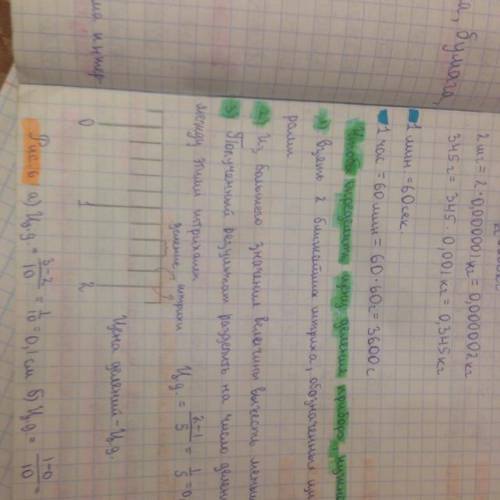 а, бумага,
ма интер
2 мг = 2 · 0,000001 кг = 0,000002 кг
345 г = 345 · 0,001 кг = 0,345 кг
1 мин = 60 сек
1 час = 60 мин = 60 · 60 с = 3600 с
Чтобы определить цену деления прибора, нужно
1) взять 2 ближайших штриха, обозначенных ци
рами
2) Из большего значения величины вычесть меньш
3) Полученный результат разделить на число делен
между этими штрихами
деление штрихи
Ц.д. = 2-1/5 = 1/5 = 0,
0 1 2
Цена делений - Ц.д.
Рис. 6 а) Ц.д. = 3-2/10 = 1/10 = 0,1 см б) Ц.д. = 1-0/10